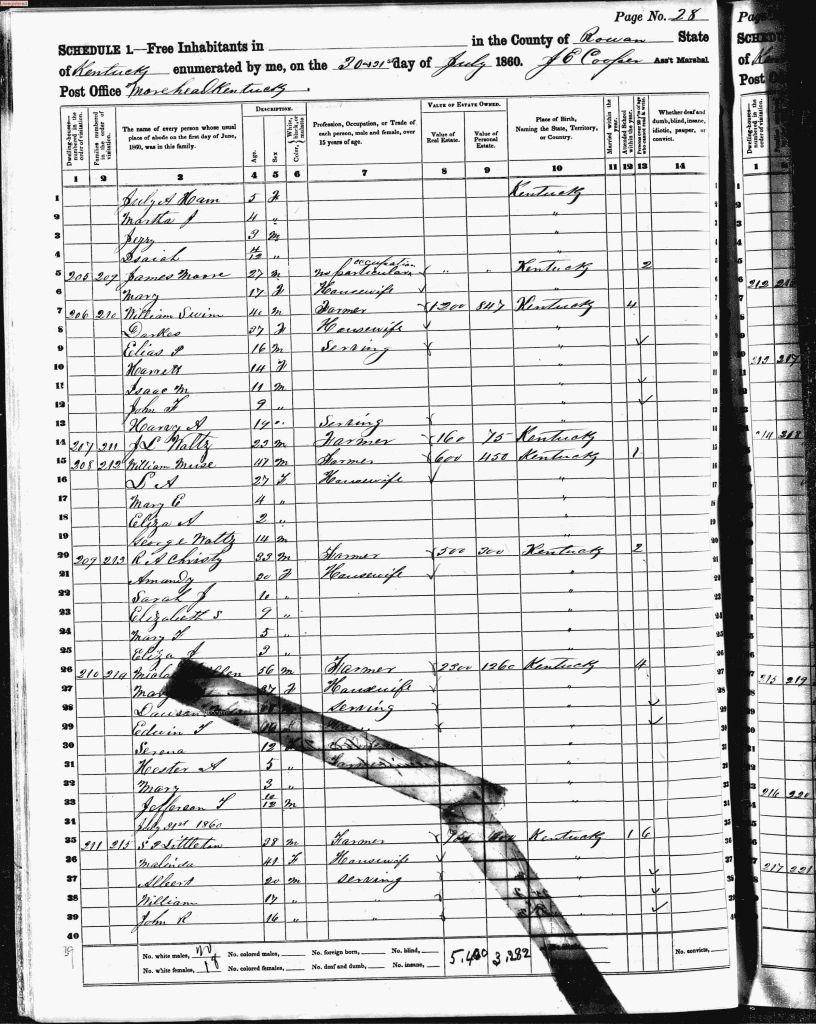 Page No. 28
SCHEDULE 1.—Free Inhabitants in in the County of Rowan State
of Kentucky enumerated by me, on the 20 & 21st day of July 1860. J E Cooper Ass't Marshal
Post Office Morehead Kentucky.
DESCRIPTION. VALUE OF ESTATE OWNED.
Dwelling-houses—numbered in the order of visitation. Families numbered in the order of visitation. The name of every person whose usual place of abode on the first day of June, 1860, was in this family. Age. Sex. Color, White, black, or mulatto. Profession, Occupation, or Trade of each person, male and female, over 15 years of age. Value of Real Estate. Value of Personal Estate. Place of Birth, Naming the State, Territory, or Country. Married within the year. Attended School within the year. Whether deaf and dumb, blind, insane, idiotic, pauper, or convict.
1 2 3 4 5 6 7 8 9 10 11 12 13 14
1 July A Ham 5 F Kentucky
2 Martha J 4 " "
3 Jezzy 3 m "
4 Isaiah 4/12 " "
5 205 209 James Moore 27 m no particular occupation " " Kentucky 2
6 Mary 17 F Housewife "
7 206 210 William Swim 40 m Farmer 1200 847 Kentucky 4
8 Darkes 37 F Housewife "
9 Elias P 16 m Serving "
10 Harrett 14 F "
11 Isaac M 11 m "
12 John F 9 " "
13 Harvy A 19 " Serving "
14 207 211 J L Waltz 23 m Farmer 160 75 Kentucky
15 208 212 William Muse 48 m Farmer 600 450 Kentucky 1
16 L A 27 F Housewife "
17 Mary E 4 " "
18 Eliza A 2 " "
19 George Waltz 14 m "
20 209 213 R A Christy 33 m Farmer 500 300 Kentucky 2
21 Amandy 30 F Housewife "
22 Sarah J 10 " "
23 Elizabeth S 9 " "
24 Mary F 5 " "
25 Eliza J 3 " "
26 210 214 56 m Farmer 2300 1260 Kentucky 4
27 Mary 37 F Housewife "
28 Serving "
29 Edwin T "
30 Serena 12 "
31 Hester A 5 " "
32 Mary 3 " "
33 Jefferson T 10/12 m "
34 July 21st 1860
35 211 215 S Littleton 38 m Farmer Kentucky 1 6
36 Malinda 41 F Housewife "
37 Albert 20 m Serving "
38 William 17 " " "
39 John R 16 " "
40
No. white males, 20 No. colored males, No. foreign born, No. blind, 5,460 3,382 No. convicts,
No. white females, 18 No. colored females, No. deaf and dumb, No. insane,